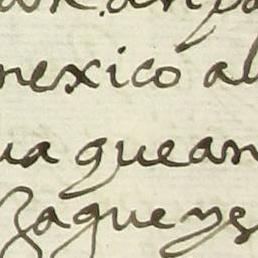 mexico al
ua quean
zaque ys